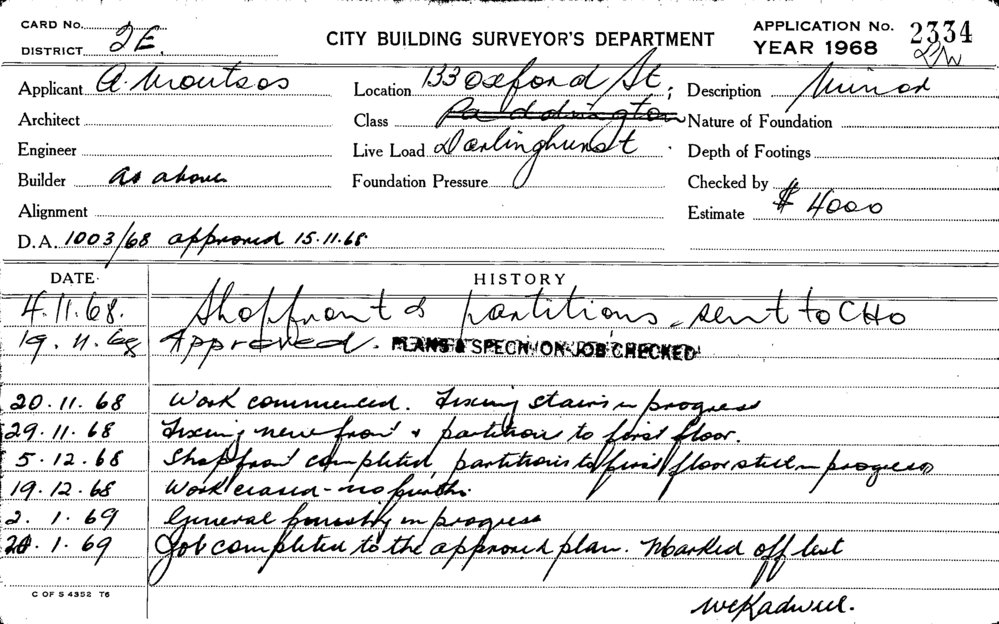 CARD No.
DISTRICT 2E.
CITY BUILDING SURVEYOR'S DEPARTMENT
APPLICATION No. 2334
YEAR 1968
Applicant A. Moutsos
Location 133 Oxford St,
Description Minor
Architect
Class Paddington
Nature of Foundation
Engineer
Live Load Darlinghurst
Depth of Footings
Builder As above
Foundation Pressure
Checked by
Alignment
Estimate $ 4000
D.A. 1003/68 approved 15.11.68
DATE.
HISTORY
4.11.68. Shopfront & partitions - sent to CHO
19.11.68 Approved. PLANS & SPECN/ON-JOB CHECKED
20.11.68 Work commenced. Fixing stairs in progress
29.11.68 Fixing new front & partition to first floor.
5.12.68 Shopfront completed, partitions to first floor still in progress
19.12.68 Work ceased - no
2.1.69 General in progress
20.1.69 Job completed to the approved plan. Marked off list
C OF S 4352 T6